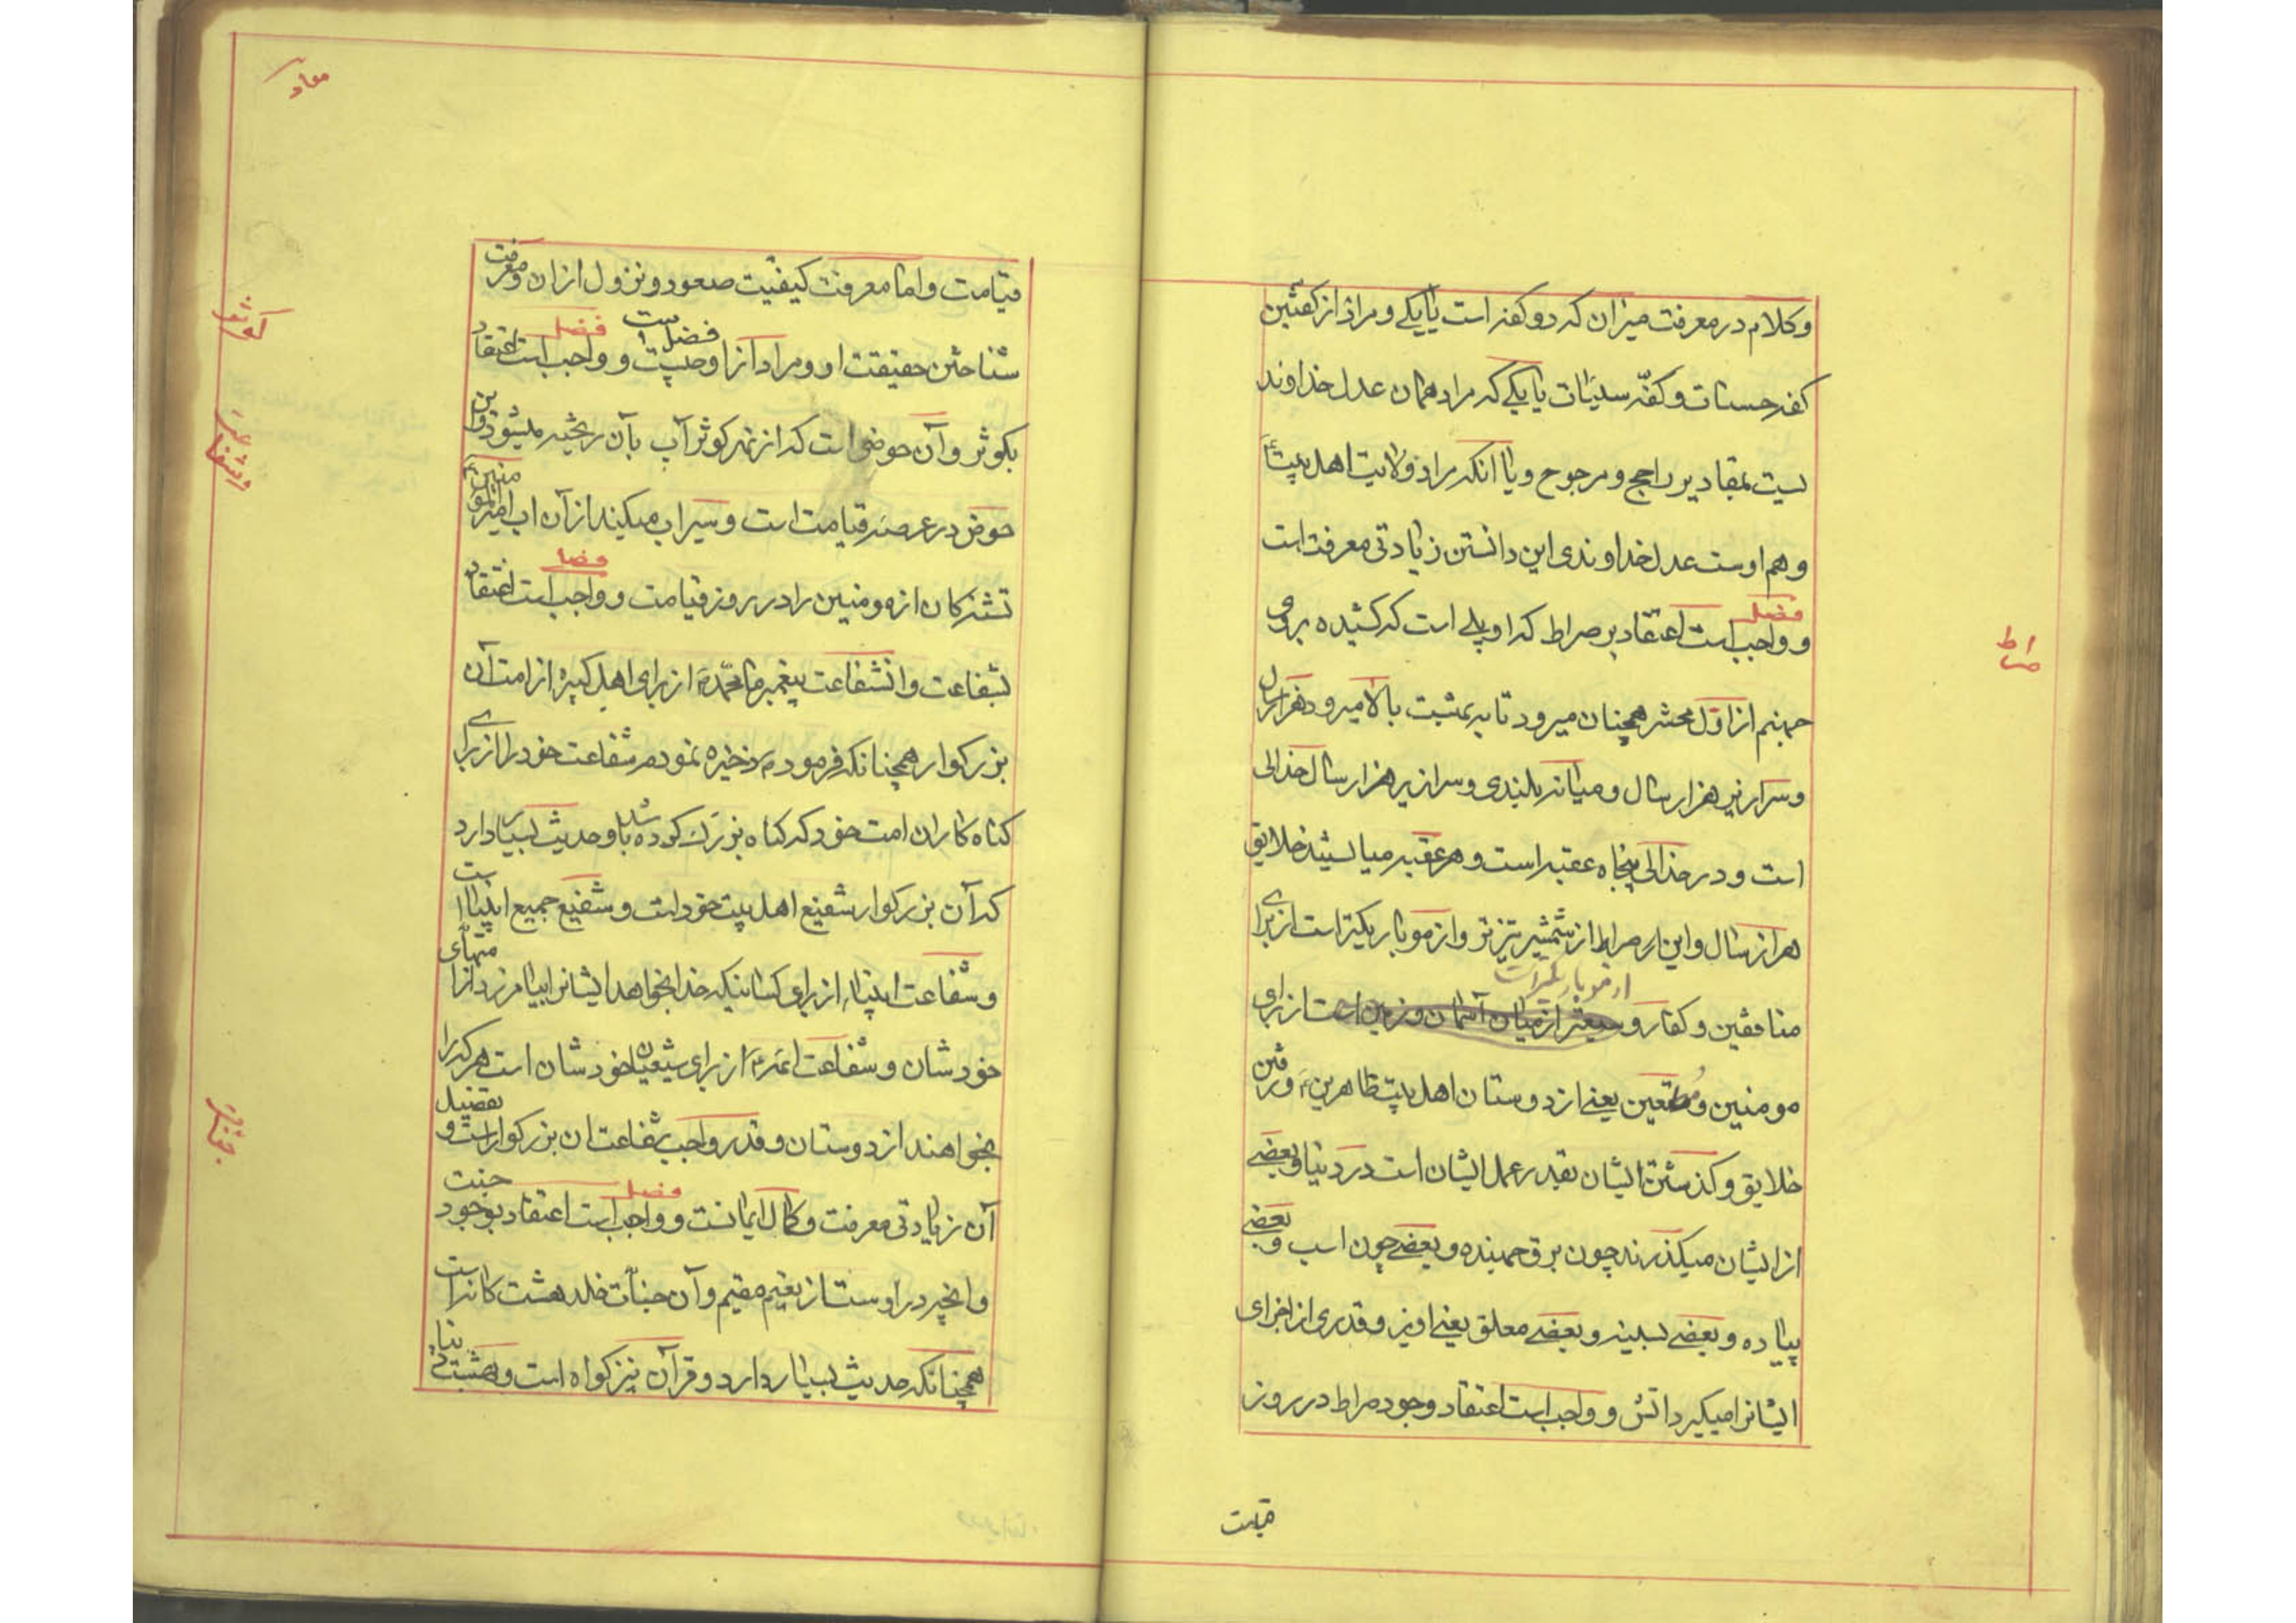 وکلام در معرفت میزان که دو کفه است یا یکی و مراد از کفتین
کفه حسنات و کفّه سیئات یا یکی که مراد همان عدل خداوند
لیست بمقادیر راجح و مرجوح و یا انکه مراد ولایت اهل بیت
و هم اوست عدل خداوندی این دانستن زیادتی معرفت است
فصل
و واجب است اعتقاد بر صراط که او پلی است که کشیده بروی
صراط
جهنم از اوّل محشر همچنان میرود تا به بهشت بالا میرود هزار سال
و سرازیر هزار سال و میانه بلندی و سرازیر هزار سال خدالی
است و در خدالی پنجاه عقبه است و هر عقبه میایستند خلایق
هزار سال و این صراط از شمشیر تیزتر و از مو باریکتر است از برای
از مو باریکتر است
منافقین و کفار و وسیعتر از میان آسمان و زمین است از برای
مومنین و مطیعین یعنی از دوستان اهل بیت طاهرین و رفتن
خلایق و کذشتن ایشان بقدر عمل ایشان است در دنیا و بعضی
از ایشان میکذرند چون برق جهنده و بعضی چون اسب و بعضی
پیاده و بعضی بسینه و بعضی معلق یعنی اویز و قدری از اجزای
ایشانرا میکیرد اتش و واجب است اعتقاد وجود صراط در روز
قیمت
معاد
قیامت و اما معرفت کیفیّت صعود و نزول از ان و معرفت
شناختن حقیقت او و مراد از او فضل است و واجب است اعتقاد
فصل
کوثر
بکوثر و آن حوضی است که از نهر کوثر آب بآن ریخته میشود و این
حوض در عرصه قیامت است و سیراب میکند از آن اب امیرالمومنین
شفاعت
فصل
تشنه کان از مومنین را در روز قیامت و واجب است اعتقاد
بشفاعت و ان شفاعت پیغمبر ما محمّد از برای اهل کبیره از امت آن
بزرکوار همچنانکه فرمود ذخیره نمودم شفاعت خود را از برای
کناه کاران امت خود که کناه بزرک کوده باشد و حدیث بسیار دارد
که آن بزرکوار شفیع اهل بیت خود است و شفیع جمیع انبیا است
و شفاعت انبیا از برای کسانیکه خدا بخواهد ایشانرا بیامرزد از امتهای
خودشان و شفاعت ائمه از برای شیعیان خودشان است هر که را
بخواهند از دوستان و قدر واجب شفاعت ان بزرکوار است و تفصیل
فصل
آن زیادتی معرفت و کمال ایمانست و واجب است اعتقاد بوجود جنت
و انچه در اوست از نعیم مقیم و آن جنّات خلد هشت کانه است
همچنانکه حدیث بسیار دارد و قرآن نیز کواه است و بهشت